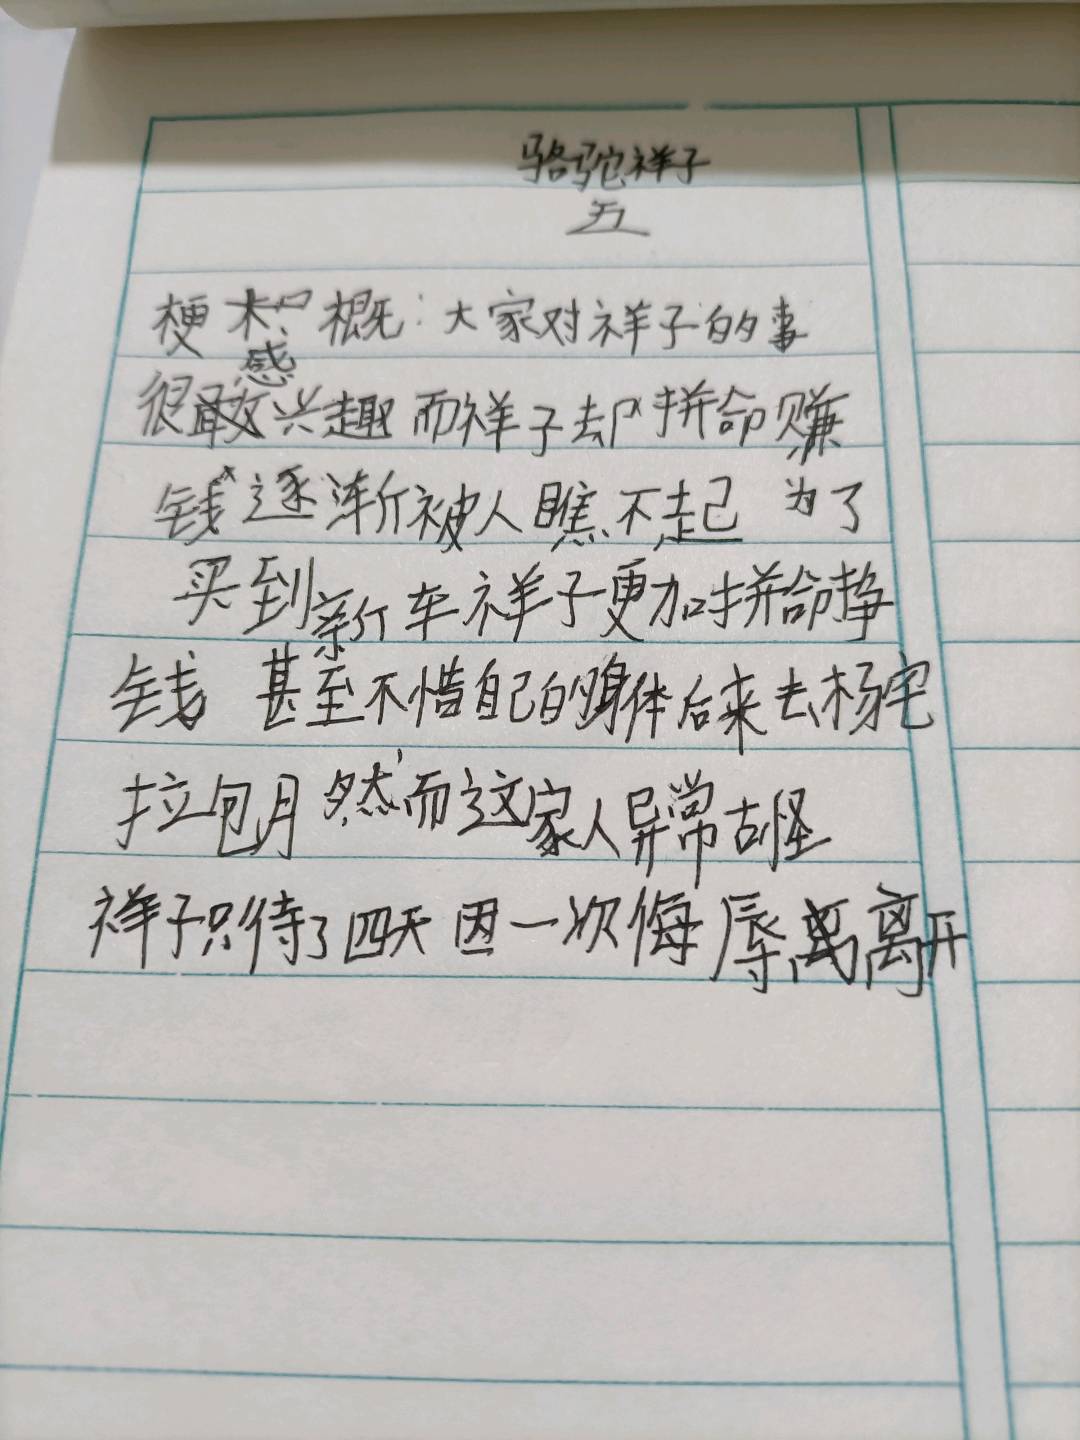 骆驼祥子
五
梗概：大家对祥子的事
很感兴趣而祥子却拼命赚
钱逐渐被人瞧不起 为了
买到新车祥子更加拼命挣
钱 甚至不惜自己的身体后来去杨宅
拉包月 然而这家人异常古怪
祥子只待了四天因一次侮辱离开